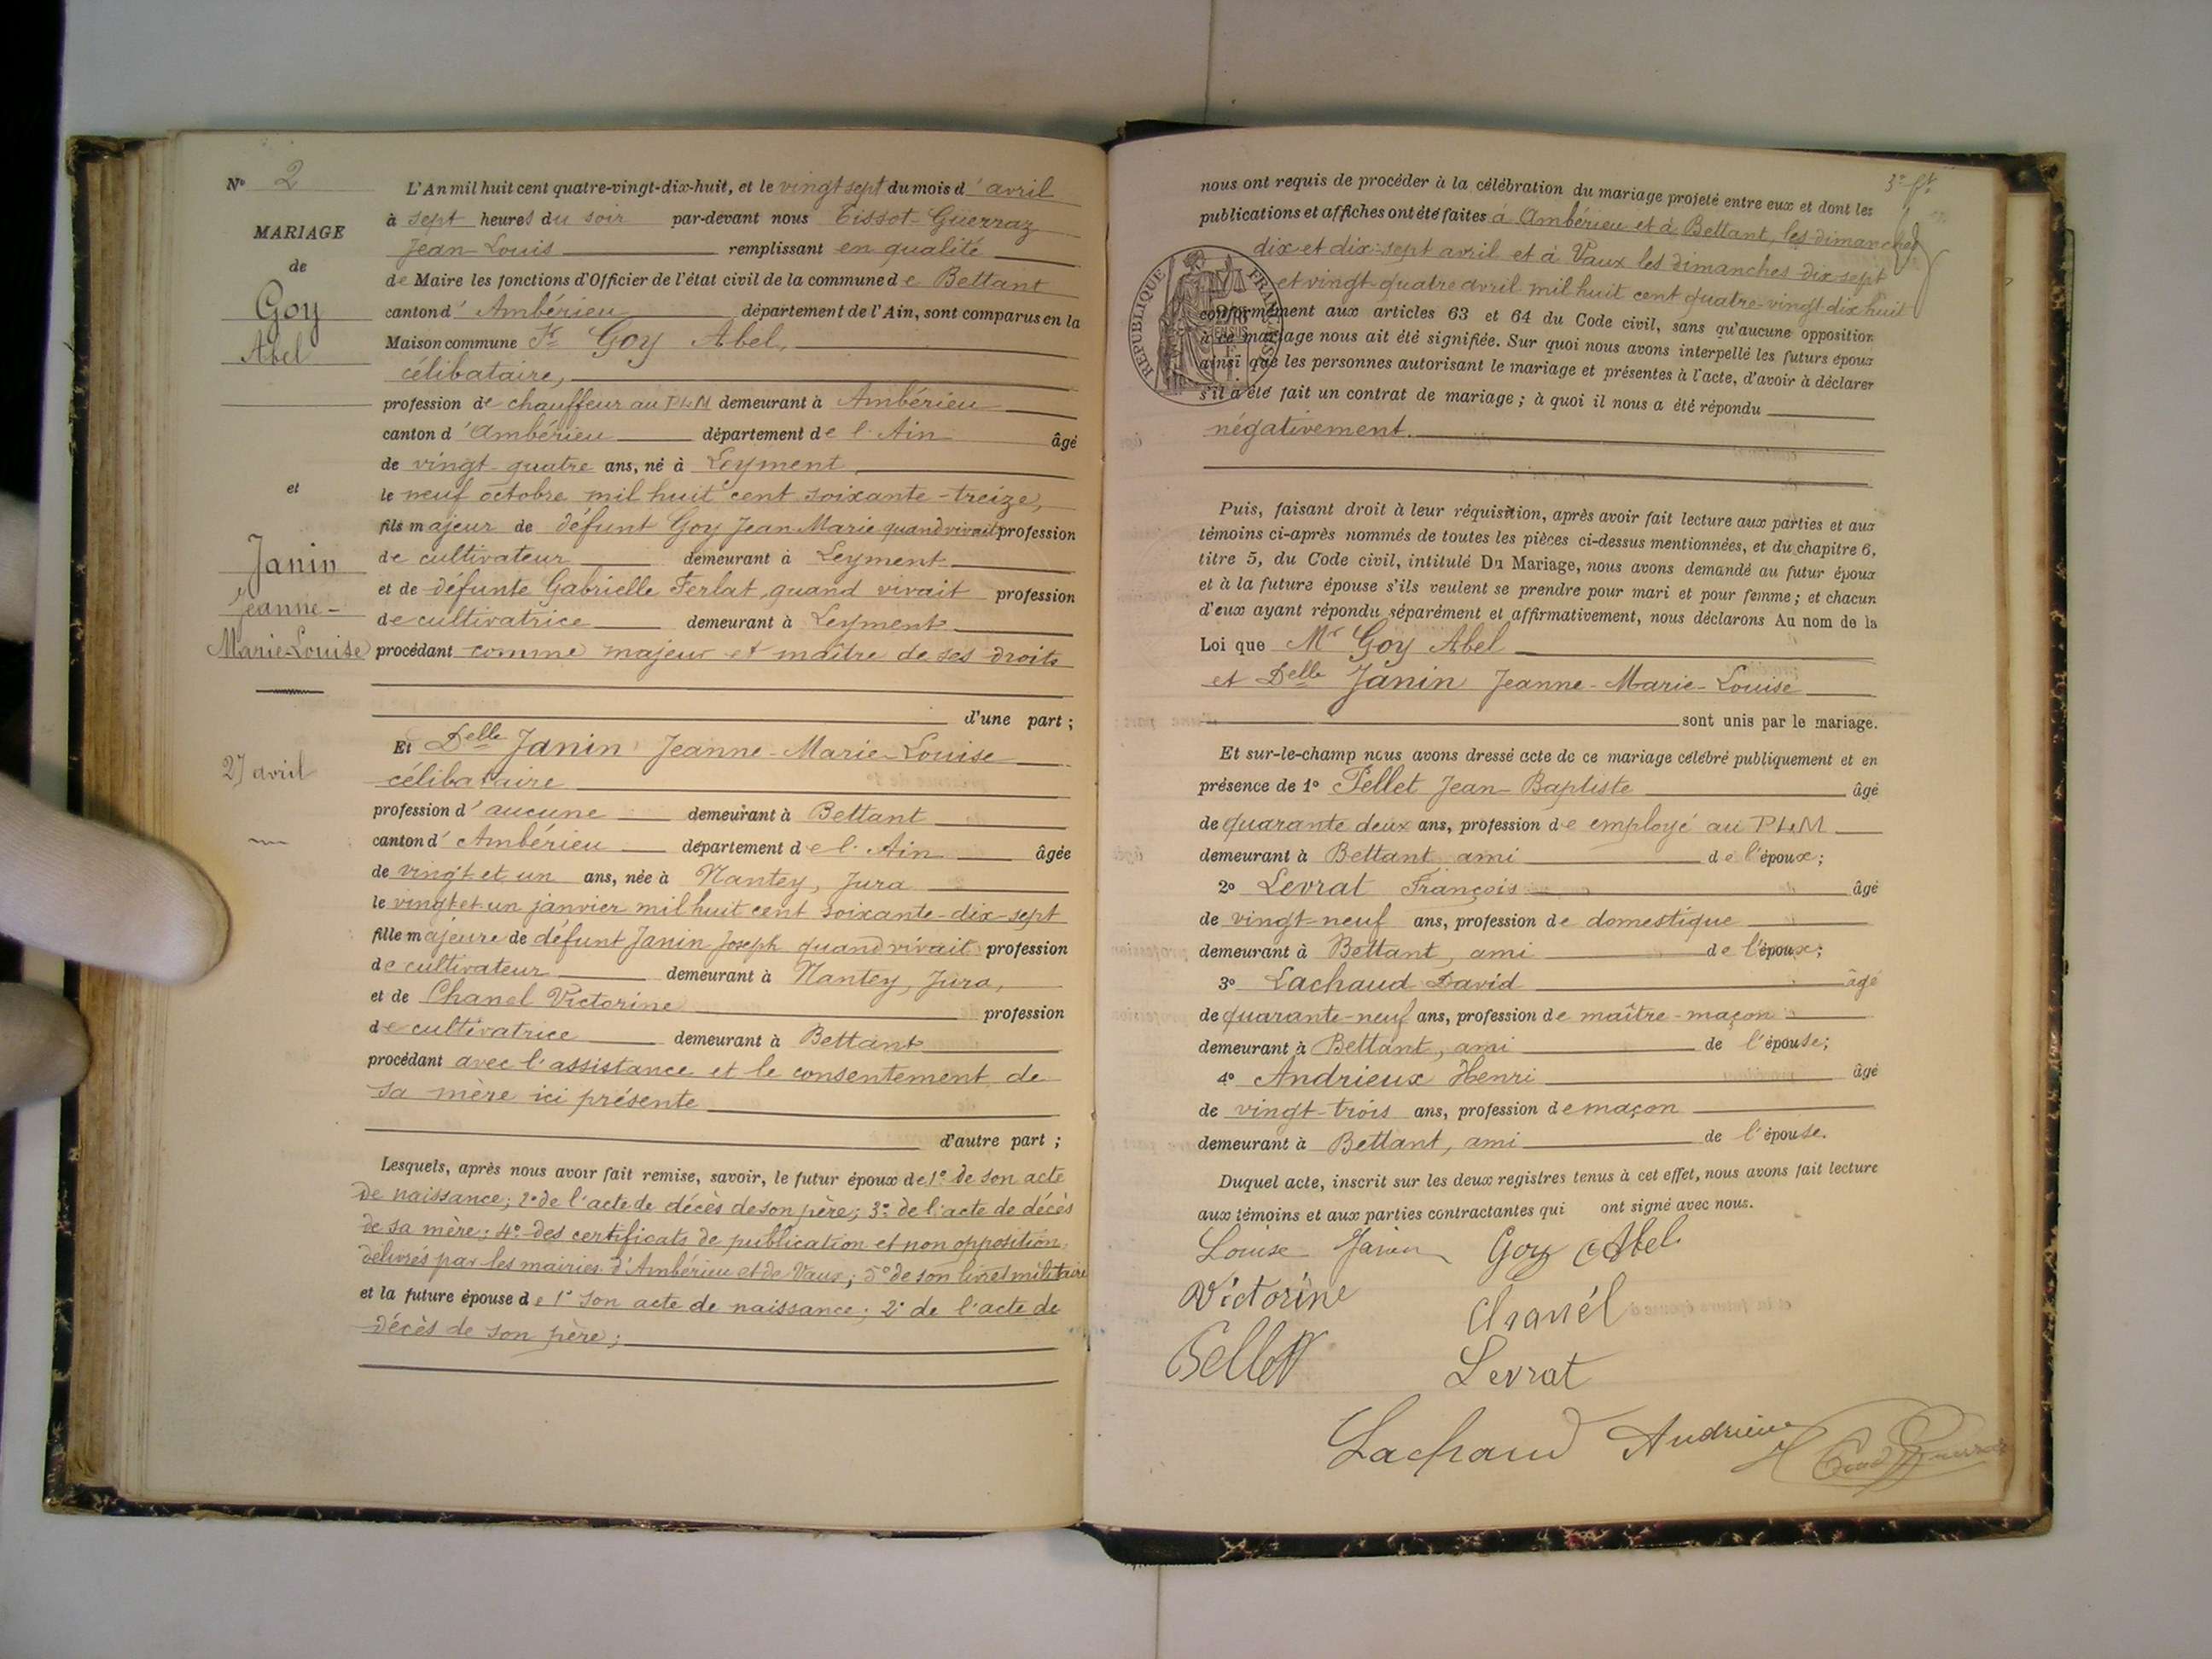 N° 2
MARIAGE
de
Goy
Abel
et
Janin
Jeanne-
Marie-Louise
27 avril
L'An mil huit cent quatre-vingt-dix-huit, et le vingt sept du mois d'avril
à sept heures du soir par-devant nous Tissot-Guerraz
Jean-Louis remplissant en qualité
de Maire les fonctions d'Officier de l'état civil de la commune de Bettant
canton d'Ambérieu département de l'Ain, sont comparus en la
Maison commune Goy Abel,
célibataire,
profession de chauffeur au PLM demeurant à Ambérieu
canton d'Ambérieu département de l'Ain âgé
de vingt-quatre ans, né à Leyment
le neuf octobre mil huit cent soixante-treize,
fils majeur de défunt Goy Jean-Marie quand vivait profession
de cultivateur demeurant à Leyment
et de défunte Gabrielle Ferlat, quand vivait profession
de cultivatrice demeurant à Leyment
procédant comme majeur et maître de ses droits
d'une part ;
Et Delle Janin Jeanne-Marie-Louise
célibataire
profession d'aucune demeurant à Bettant
canton d'Ambérieu département de l'Ain âgée
de vingt et un ans, née à Nantey, Jura
le vingt et un janvier mil huit cent soixante-dix-sept
fille majeure de défunt Janin Joseph quand vivait profession
de cultivateur demeurant à Nantey, Jura,
et de Chanel Victorine profession
de cultivatrice demeurant à Bettant
procédant avec l'assistance et le consentement de
sa mère ici présente
d'autre part ;
Lesquels, après nous avoir fait remise, savoir, le futur époux de 1° de son acte
de naissance ; 2° de l'acte de décès de son père ; 3° de l'acte de décès
de sa mère ; 4° des certificats de publication et non opposition
délivrés par les mairies d'Ambérieu et de Vaux ; 5° de son livret militaire
et la future épouse de 1° son acte de naissance ; 2° de l'acte de
décès de son père ;
nous ont requis de procéder à la célébration du mariage projeté entre eux et dont les
publications et affiches ont été faites à Ambérieu et à Bettant, les dimanches
dix et dix-sept avril et à Vaux les dimanches dix-sept
et vingt-quatre avril mil huit cent quatre-vingt dix huit
conformément aux articles 63 et 64 du Code civil, sans qu'aucune opposition
à ce mariage nous ait été signifiée. Sur quoi nous avons interpellé les futurs époux
ainsi que les personnes autorisant le mariage et présentes à l'acte, d'avoir à déclarer
s'il a été fait un contrat de mariage ; à quoi il nous a été répondu
négativement.
RÉPUBLIQUE FRANÇAISE
Puis, faisant droit à leur réquisition, après avoir fait lecture aux parties et aux
témoins ci-après nommés de toutes les pièces ci-dessus mentionnées, et du chapitre 6,
titre 5, du Code civil, intitulé Du Mariage, nous avons demandé au futur époux
et à la future épouse s'ils veulent se prendre pour mari et pour femme ; et chacun
d'eux ayant répondu séparément et affirmativement, nous déclarons Au nom de la
Loi que Mr Goy Abel
et Delle Janin Jeanne-Marie-Louise
sont unis par le mariage.
Et sur-le-champ nous avons dressé acte de ce mariage célébré publiquement et en
présence de 1° Pellet Jean-Baptiste âgé
de quarante deux ans, profession de employé au PLM
demeurant à Bettant ami de l'époux ;
2° Levrat François âgé
de vingt-neuf ans, profession de domestique
demeurant à Bettant, ami de l'époux ;
3° Lachaud David âgé
de quarante-neuf ans, profession de maître-maçon
demeurant à Bettant, ami de l'épouse ;
4° Andrieux Henri âgé
de vingt-trois ans, profession de maçon
demeurant à Bettant, ami de l'épouse.
Duquel acte, inscrit sur les deux registres tenus à cet effet, nous avons fait lecture
aux témoins et aux parties contractantes qui ont signé avec nous.
Louise Janin Goy Abel
Victorine Chanél
Pellet Levrat
Lachaud Andrieux